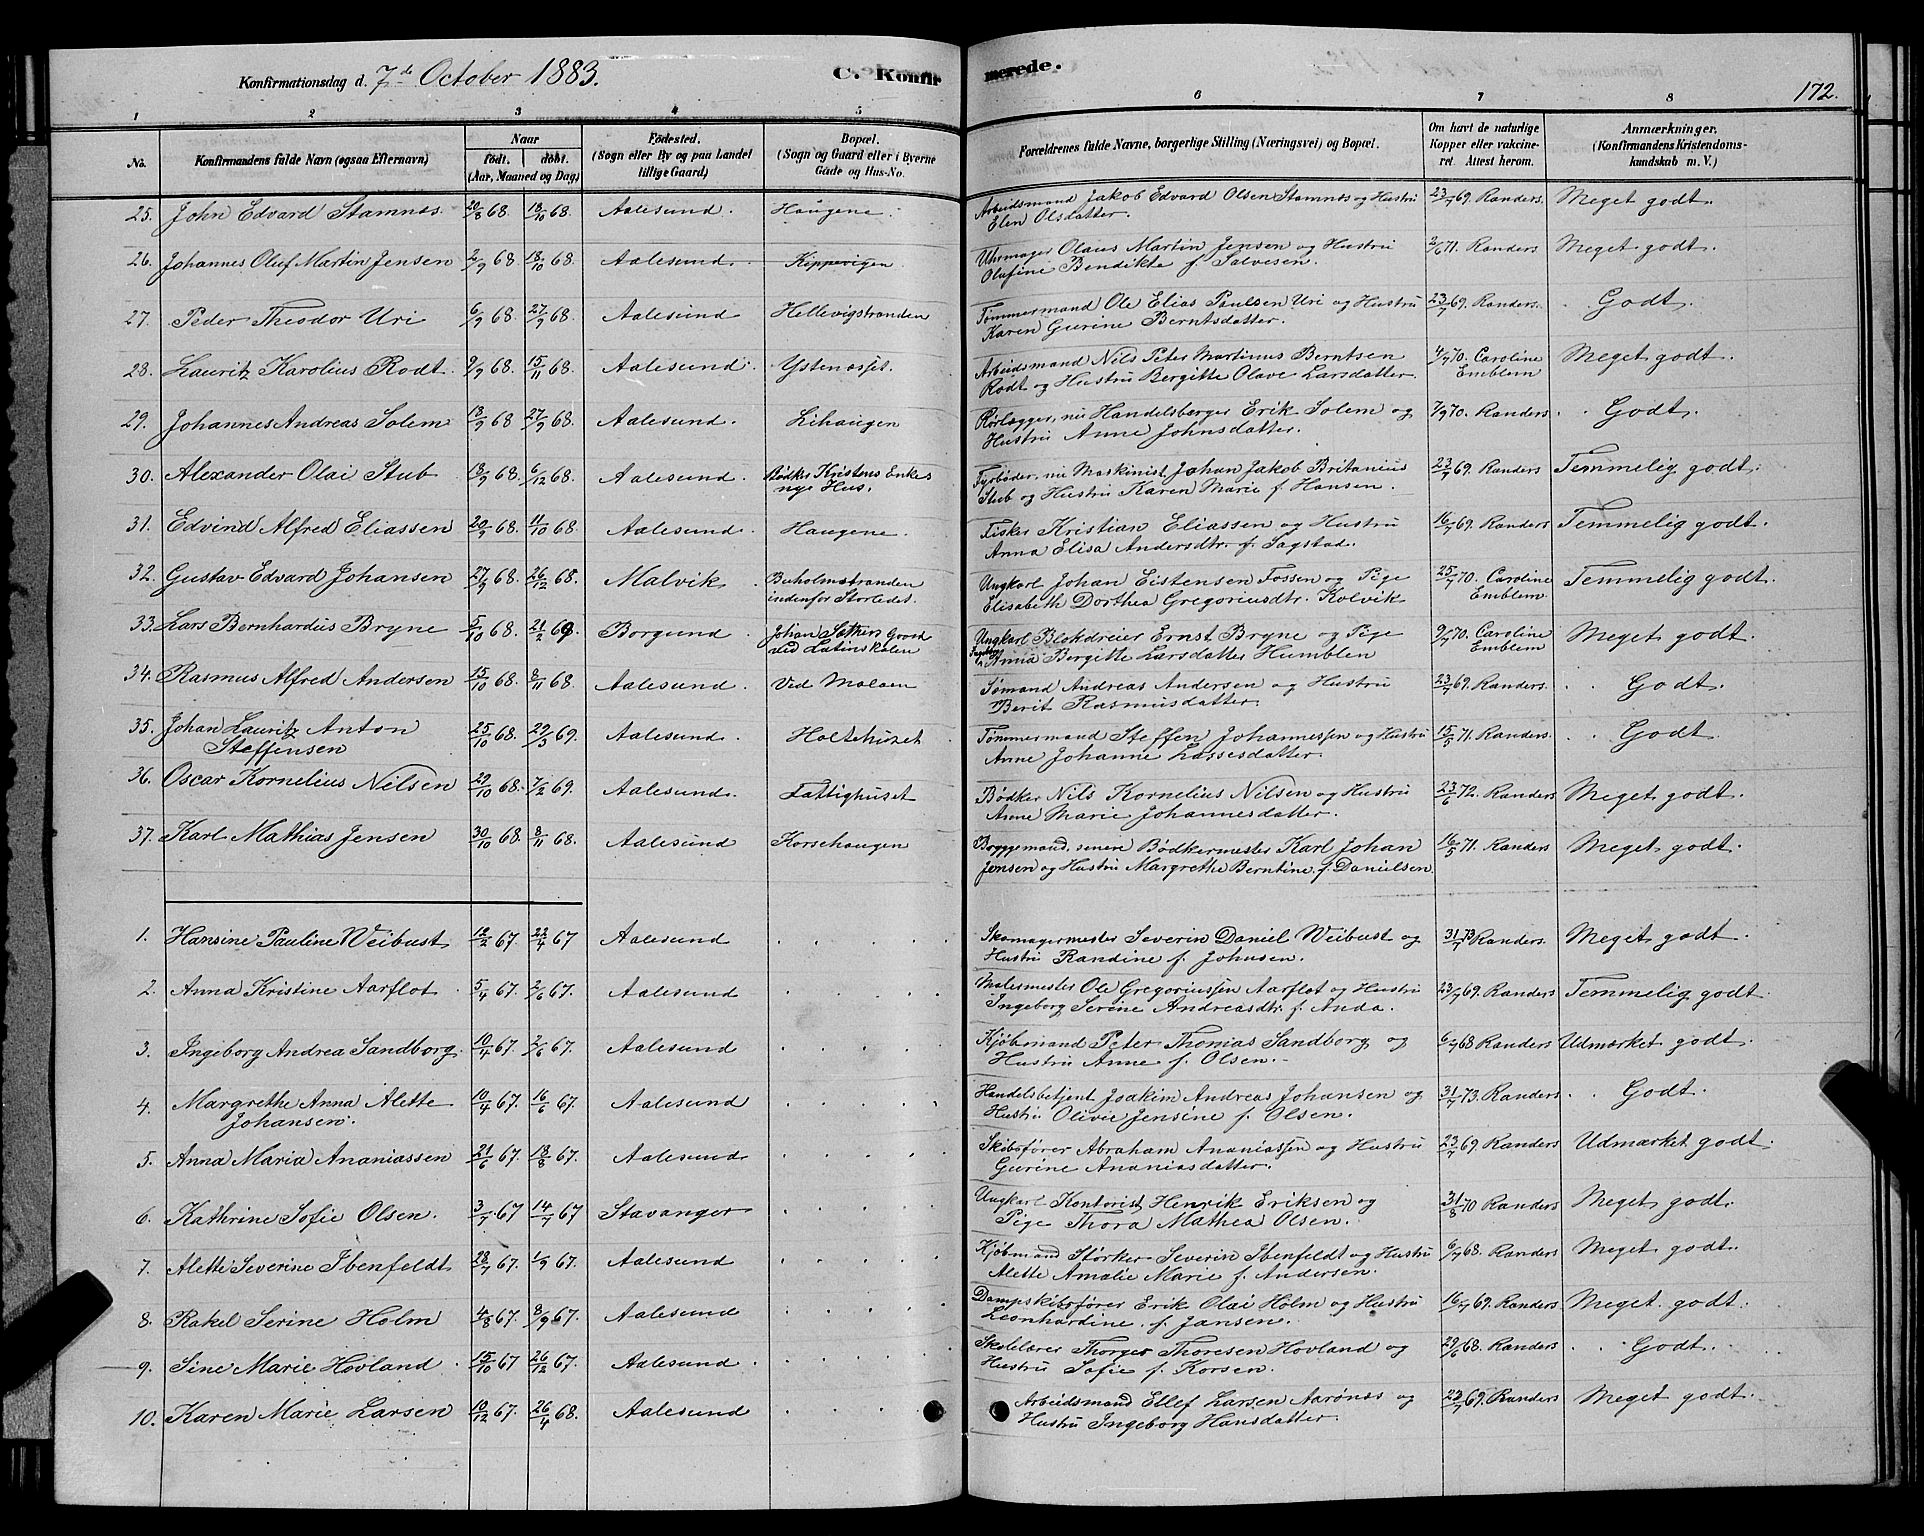 Konfirmationsdag d. 7de October 1883. C. Konfirmerede. 172.
1 2 3 4 5 6 7 8
No. Konfirmandens fulde Navn (ogsaa Efternavn) Naar født. døbt. (Aar, Maaned og Dag) Fødested. (Sogn eller By og paa Landet lillige Gaard) Bopæl. (Sogn og Gaard eller i Byerne Gade og Hus-No. Forældrenes fulde Navne, borgerlige Stilling (Næringsvei) og Bopæl. Om havt de naturlige Kopper eller vakcineret. Attest herom. Anmærkninger. (Konfirmandens Kristendomskundskab m. V.)
25. John Edvard Stamnes 20/8 68. 18/10 68. Aalesund. Haugene. Arbeidsmand Jakob Edvard Olsen Stamnes og Hustru 23/7 69. Randers. Meget godt.
Elen Olsdatter.
26. Johannes Oluf Martin Jensen 2/9 68. 18/10 68. Aalesund. Kippevigen. Uhrmager Olaus Martin Jensen og Hustru 2/6 71. Randers Meget godt.
Olufine Bendikte f. Salvesen.
27. Peder Theodor Uri 6/9 68. 27/9 68. Aalesund Hellevigstranden Tømmermand Ole Elias Paulsen Uri og Hustru 23/7 69. Randers. Godt.
Karen Gurine Berntsdatter.
28. Lauritz Karolius Rodt. 9/9 68. 15/11 68. Aalesund. Ystenæsset. Arbeidsmand Nils Peter Martinus Berntsen 4/7 70. Caroline Emblem Meget godt.
Rodt og Hustru Bergitte Olave Larsdatter.
29. Johannes Andreas Solem 13/9 68 27/9 68. Aalesund. Lihaugen Rørlægger, nu Handelsborger Erik Solem og 7/9 70. Randers. Godt.
Hustru Anne Johnsdatter.
30. Alexander Olai Stub 13/9 68. 6/12 68. Aalesund. Bødker Kristens Enkes nye Hus. Fyrbøder, nu Maskinist Johan Jakob Britanius 23/7 69. Randers Temmelig godt.
Stub og Hustru Karen Marie f. Hansen.
31. Edvind Alfred Eliassen 20/9 68. 11/10 68. Aalesund. Haugene. Fisker Kristian Eliassen og Hustru 16/7 69. Randers Temmelig godt.
Anna Elisa Andersdtr. f. Sagstad.
32. Gustav Edvard Johansen 27/9 68. 26/12 68. Malvik Buholmstranden indenfor Storledet. Ungkarl Johan Eistensen Fossen og Pige 25/7 70. Caroline Emblem. Temmelig godt.
Elisabeth Dorthea Gregoriusdtr. Kolvik
33. Lars Bernhardus Bryne 5/10 68. 21/2 69. Borgund. Johan Sathers Gaard ved Latinskolen Ungkarl Blokdreier Ernst Bryne og Pige 9/7 70. Caroline Emblem Meget godt.
Anna Bergitte Larsdatter Humblen
34. Rasmus Alfred Andersen 15/10 68. 8/11 68. Aalesund. Ved Moloen Sømand Andreas Andersen og Hustru 23/7 69. Randers. Godt.
Berit Rasmusdatter.
35. Johan Lauritz Anton Steffensen 25/10 68. 29/3 69. Aalesund. Holtehuset Tømmermand Steffen Johannessen og Hustru 15/5 71. Randers. Godt
Anne Johanne Lassesdatter.
36. Oscar Kornelius Nilsen 29/10 68. 7/2 69. Aalesund. Fattighuset Bødker Nils Kornelius Nilsen og Hustru 23/6 72. Randers Meget godt.
Anne Marie Johannesdatter.
37. Karl Mathias Jensen 30/10 68. 8/11 68. Aalesund Korsehaugen Byggemand, senere Bødkermester Karl Johan 16/5 71. Randers Meget godt.
Jensen og Hustru Margrethe Berntine f. Danielsen.
1. Hansine Pauline Weibust 12/2 67. 22/4 67 Aalesund Skomagermester Severin Daniel Weibust og 31/7 73 Randers. Meget godt.
Hustru Randine f. Johnsen.
2. Anna Kristine Aarflot 5/4 67. 2/6 67. Aalesund Malermester Ole Gregoriussen Aarflot og Hustru 23/7 69. Randers Temmelig godt.
Ingeborg Serine Andreasdtr. f. Anda.
3. Ingeborg Andrea Sandborg. 10/4 67. 2/6 67. Aalesund Kjøbmand Peter Thomas Sandborg og 6/7 68 Randers Udmærket godt.
Hustru Anne f. Olsen.
4. Margrethe Anna Alette Johansen. 10/4 67. 16/6 67. Aalesund Handelsbetjent Joakim Andreas Johansen og 31/7 73. Randers. Godt.
Hustru Olivie Jensine f. Olsen.
5. Anna Maria Ananiassen 21/6 67. 18/8 67. Aalesund Skibsfører Abraham Ananiassen og Hustru 23/7 69. Randers Udmærket godt.
Gurine Ananiasdatter.
6. Kathrine Sofie Olsen. 3/7 67 14/7 67 Stavanger Ungkarl Kontorist Henrik Eriksen og 31/8 70 Randers Meget godt.
Pige Thora Mathea Olsen.
7. Alette Severine Ibenfeldt 28/7 67. 1/9 67. Aalesund Kjøbmand Størker Severin Ibenfeldt og Hustru 6/7 68. Randers Meget godt.
Alette Amalie Marie f. Andersen.
8. Rakel Serine Holm 4/8 67. 8/9 67. Aalesund Dampskibsfører Erik Olai Holm og Hustru 16/7 69. Randers. Meget godt.
Leonhardine. f. Jansen.
9. Sine Marie Hovland. 15/10 67 26/12 67. Aalesund Skolelærer Thorger Thoresen Hovland og 29/6 68. Randers Godt.
Hustru Sofie f. Korsen.
10. Karen Marie Larsen 10/12 67. 26/4 68. Aalesund Arbeidsmand Ellef Larsen Aarønes og 23/7 69. Randers Meget godt.
Hustru Ingeborg Hansdatter.